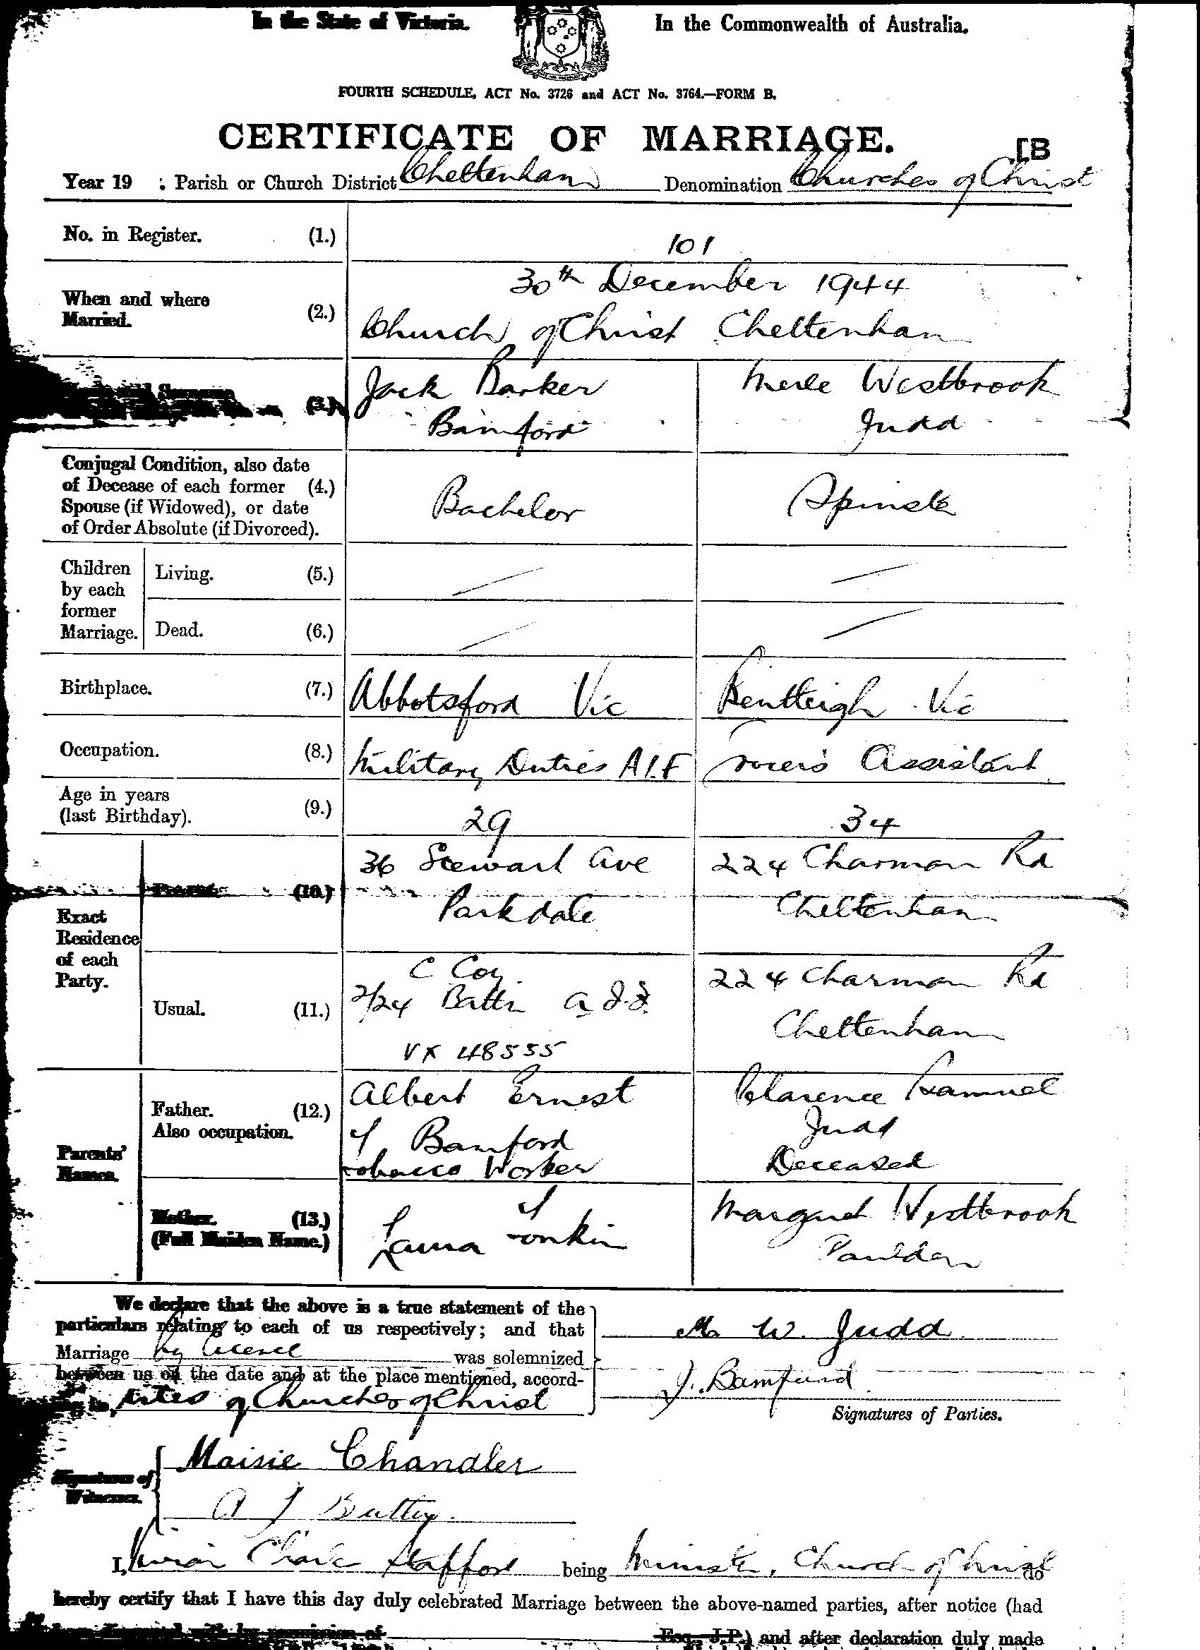 In the State of Victoria. In the Commonwealth of Australia.
FOURTH SCHEDULE, ACT No. 3726 and ACT No. 3764.—FORM B.
CERTIFICATE OF MARRIAGE. [B
Year 19 : Parish or Church District Cheltenham Denomination Churches of Christ
No. in Register. (1.) 101
30th December 1944
When and where Married. (2.) Church of Christ Cheltenham
(3.) Jack Barker Bamford Merle Westbrook Judd
Conjugal Condition, also date
of Decease of each former (4.) Bachelor Spinster
Spouse (if Widowed), or date
of Order Absolute (if Divorced).
Children by each former Marriage. Living. (5.)
Dead. (6.)
Birthplace. (7.) Abbotsford Vic Bentleigh Vic
Occupation. (8.) Military Duties A.I.F Assistant
Age in years
(last Birthday). (9.) 29 34
Exact Residence of each Party.
(10.) 36 Stewart Ave 224 Charman Rd
Parkdale Cheltenham
Usual. (11.) C Coy 224 Charman Rd
2/24 Battn A.I.F. Cheltenham
VX 48555
Parents' Names.
Father. (12.) Albert Ernest Clarence Samuel
Also occupation. Bamford Judd
Tobacco Worker Deceased
Mother. (13.) Margaret Westbrook
(Full Maiden Name.) Laura Tonkin
We declare that the above is a true statement of the
particulars relating to each of us respectively; and that M. W. Judd
Marriage by licence was solemnized
between us on the date and at the place mentioned, accord- J. Bamford
ing to rites of Churches of Christ Signatures of Parties.
Signatures of Witnesses. Maisie Chandler
A J
I, Stafford being Minister, Church of Christ do
hereby certify that I have this day duly celebrated Marriage between the above-named parties, after notice (had
Esq., J.P.) and after declaration duly made